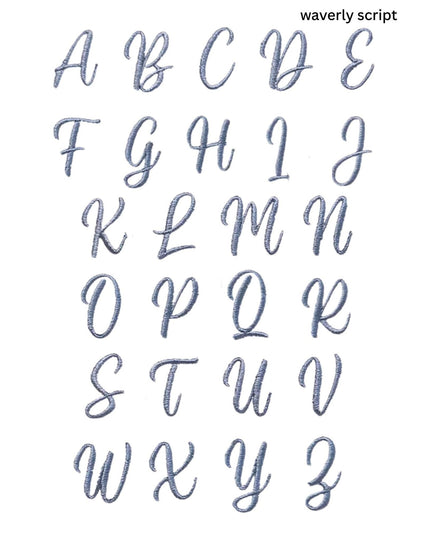 waverly script
A B C D E
F G H I J
K L M N
O P Q R
S T U V
W X Y Z